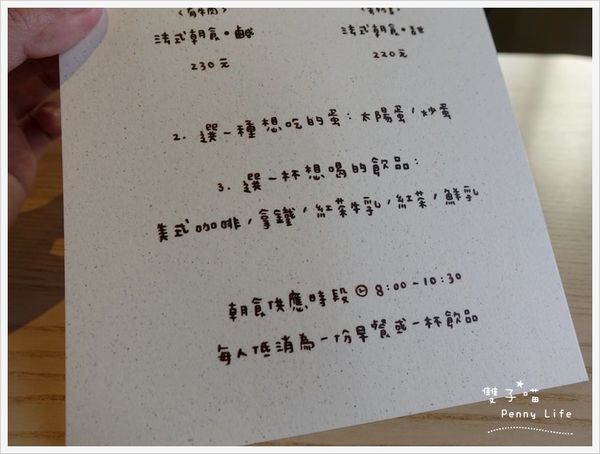 法式朝食•鹹
法式朝食•甜
230元
220元
2. 選一種想吃的蛋：太陽蛋/炒蛋
3. 選一杯想喝的飲品：
美式咖啡/拿鐵/紅茶牛乳/紅茶/鮮乳
朝食供應時段 8:00-10:30
每人低消為一份早餐或一杯飲品
雙子喵
Penny Life